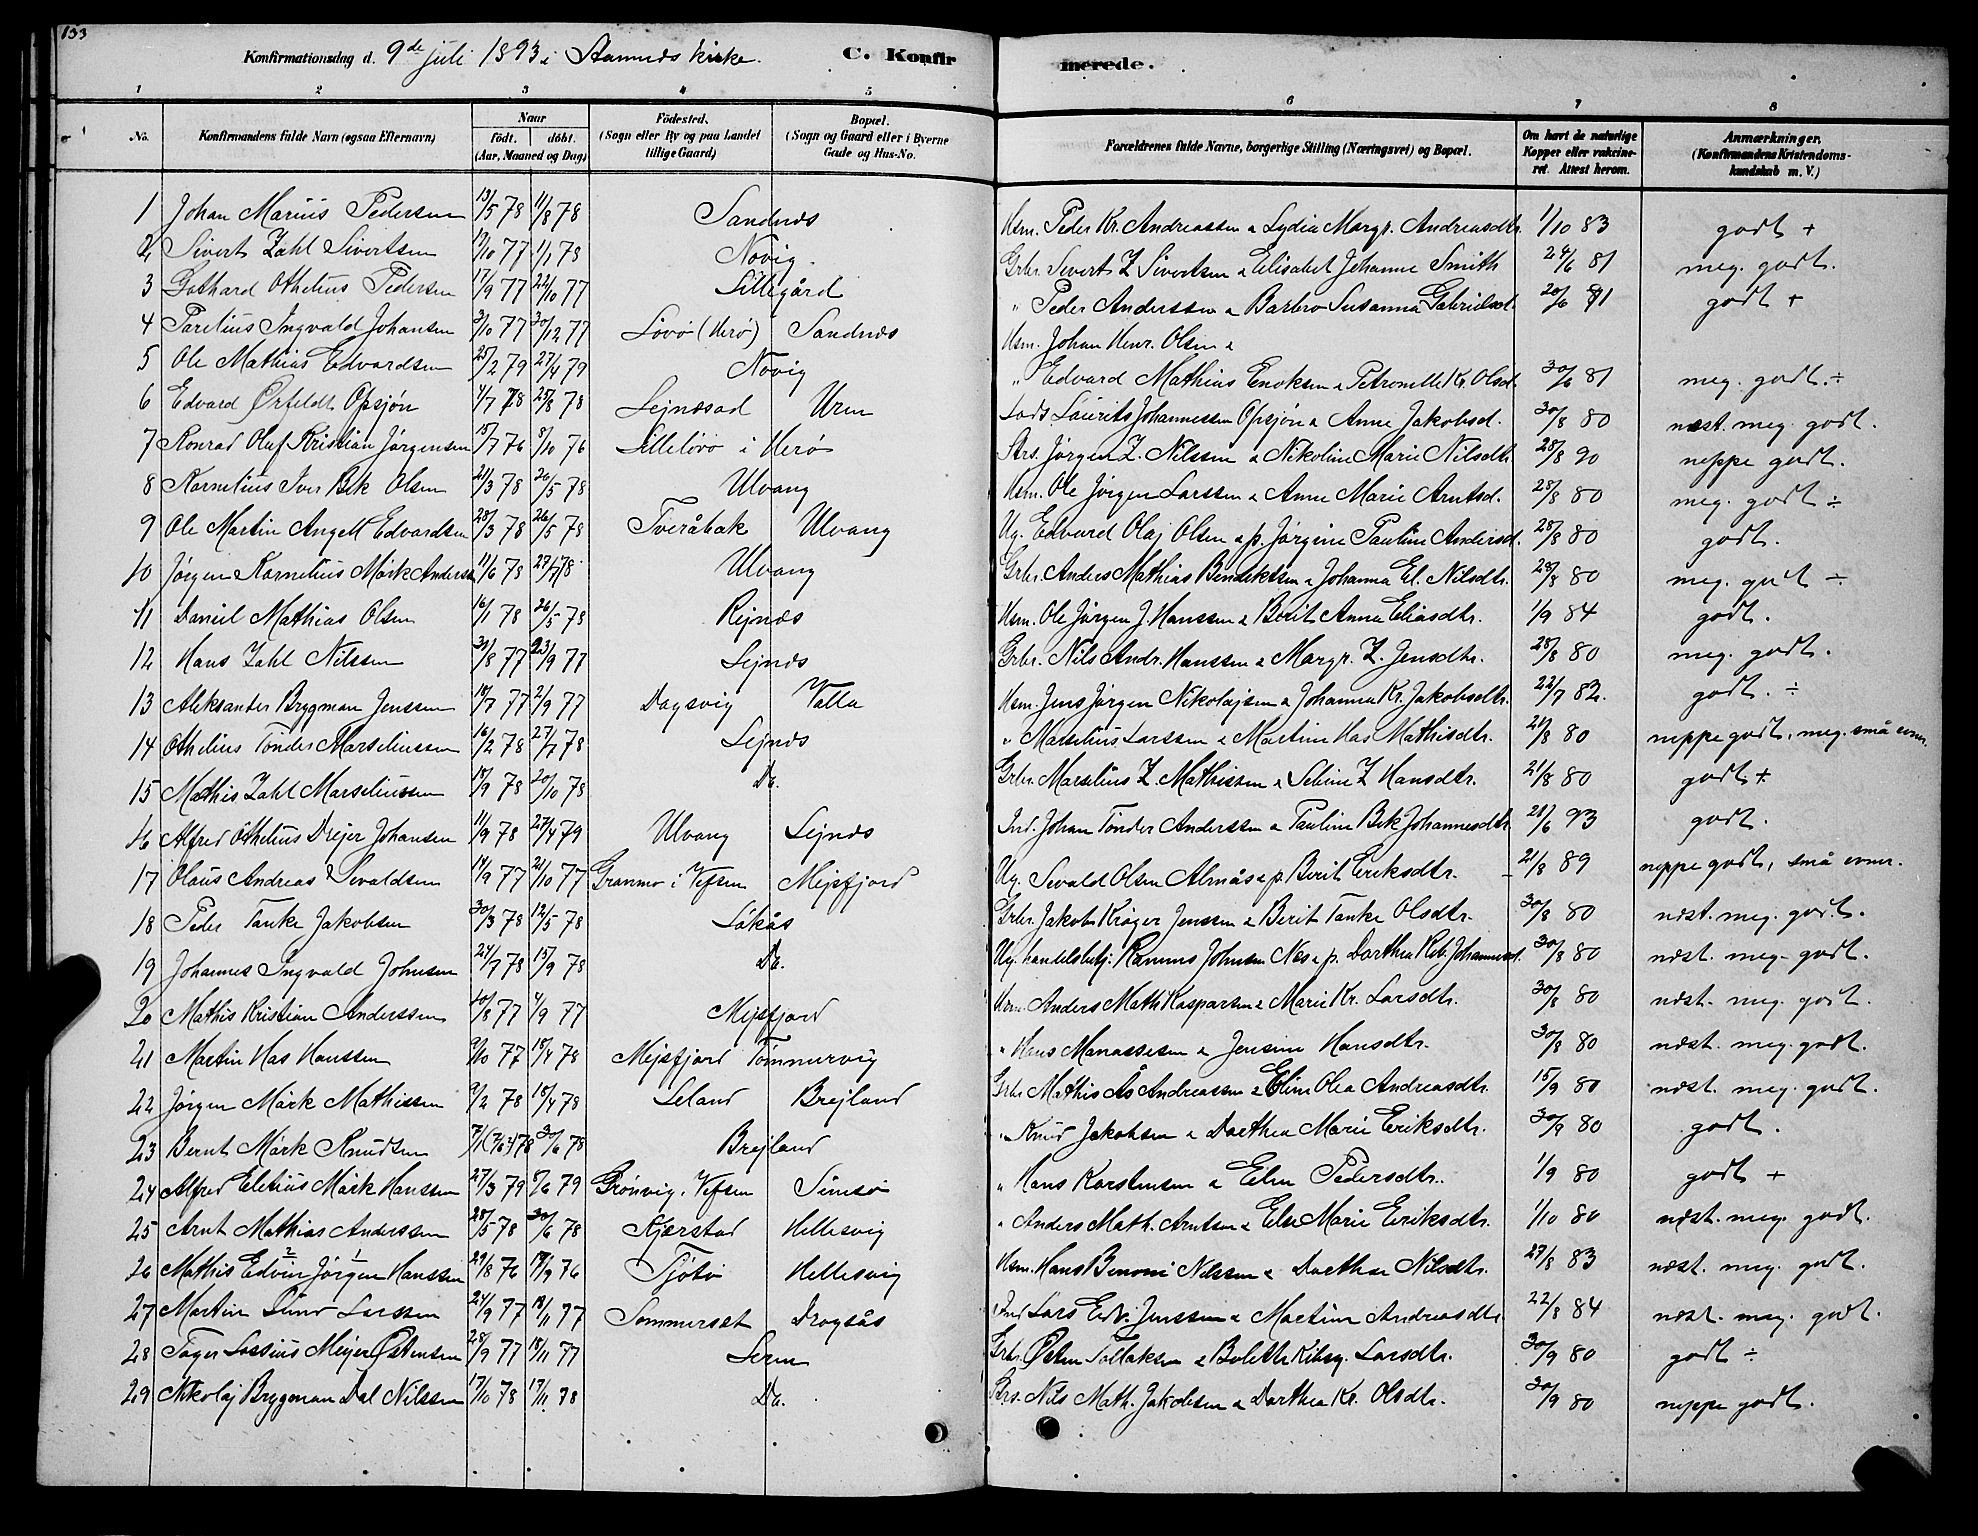 133
Konfirmationsdag d. 9de juli 1893 i Stamnæs kirke. C. Konfirmerede.
1 2 3 4 5 6 7 8
No. Konfirmandens fulde Navn (ogsaa Efternavn) Naar födt. döbt. (Aar, Maaned og Dag) Födested. (Sogn eller By og paa Landet tillige Gaard) Bopæl. (Sogn og Gaard eller i Byerne Gade og Hus-No. Forældrenes fulde Navne, borgerlige Stilling (Næringsvei) og Bopæl. Om havt de naturlige Kopper eller vakcineret. Attest herom. Anmærkninger. (Konfirmandens Kristendomskundskab m. V.)
1 Johan Marius Pedersen 13/5 78 11/8 78 Sandnæs Hsm. Peder Kr. Andreassen & Lydia Margr. Andreasdtr. 1/10 83 godt +
2 Sivert Zahl Sivertsen 19/10 77 1/1 78 Novig Grbr. Sivert Z Sivertsen & Elisabet Johanne Smith 24/6 81 meg. godt.
3 Gothard Othelius Pedersen 17/9 77 22/10 77 Lillegård " Peder Anderssen & Barbro Susanna Gabrielsd. 20/6 81 godt +
4 Parelius Ingvald Johansen 3/10 77 30/12 77 Lövö (Herö) Sandnæs Hsm. Johan Henr. Olsen &
5 Ole Mathias Edvardsen 25/2 79 27/4 79 Novig " Edvard Mathias Enoksen & Petronelle Kr. Olsd. 30/6 81 meg. godt. ÷
6 Edvard Ørfeldt Opsjøn 4/7 78 25/8 78 Lejnæsod Urm Lods Laurits Johannessen Opsjøn & Anne Jakobsd. 30/8 80 næst. meg. godt.
7 Konrad Oluf Kristian Jørgensen 15/7 76 8/10 76 Lillelövö i Herö Strs. Jørgen Z. Nilssen & Nikoline Marie Nilsdtr 28/8 90 neppe godt.
8 Kornelius Iver Bek Olsen 21/3 78 20/5 78 Ulvang Hsm. Ole Jörgen Larssen & Anne Marie Arntsd. 28/8 80 meg. godt ÷
9 Ole Martin Angell Edvardsen 28/3 78 26/5 78 Tveråbak Ulvang Ug. Edvard Olaj Olsen & p. Jørgine Pauline Andersd. 28/8 80 godt.
10 Jørgen Kornelius Mörk Anderss 11/6 78 28/7 78 Ulvang Grbr. Anders Mathias Bendiktsen & Johanna El. Nilsdtr. 28/8 80 meg. godt ÷
11 Daniel Mathias Olsen 16/1 78 26/5 78 Rejnæs Hsm. Ole Jørgen J. Hanssen & Berit Anna Eliasdtr. 1/9 84 godt.
12 Hans Zahl Nilssen 30/8 77 23/9 77 Lejnæs Grbr. Nils Andr. Hanssen & Margr. Z. Jensdtr. 28/8 80 meg. godt.
13 Aleksander Brygman Jenssen 18/7 77 2/9 77 Dagsvig Valla Hsm. Jens Jørgen Nikolajsen & Johanna Kr. Jakobsdtr. 22/7 82. godt. ÷
14 Othelius Tönder Marseliussen 16/2 78 27/7 78 Lejnæs " Marselius Larssen & Martine Has Mathisdtr. 21/8 80 neppe godt, meg. små evner.
15 Mathis Zahl Marseliussen 18/9 78 20/10 78 Do. Grbr. Marselius Z. Mathissen & Seline Z Hansdtr. 21/8 80 godt +
16 Alfred Othelius Drejer Johansen 11/9 78 27/4 79 Ulvang Lejnæs Ind. Johan Tönder Anderssen & Pauline Bek Johannesdtr 28/6 93 godt.
17 Olaus Andreas Sevaldsen 14/9 77 21/10 77 Granmo i Vefsen Mejsfjord Ug. Sevald Olsen Almås & p. Berit Eriksdtr. 21/8 89 neppe godt, små evner.
18 Peder Tanke Jakobsen 30/3 78 12/5 78 Låkås Grbr. Jakob Kröger Jenssen & Berit Tanke Olsdtr. 30/8 80 næst. meg. godt.
19 Johannes Ingvald Johnsen 24/7 78 15/9 78 Do. Ug. handelsbetj. Rasmus Johnsen Næs & p. Dorthea Reb. Johannesd. 30/8 80 næst. meg. godt.
20 Mathis Kristian Anderssen 10/8 77 4/9 77 Mejsfjord Hsm. Anders Math. Kasparsen & Marie Kr. Larsdtr. 30/8 80 næst. meg. godt.
21 Martin Has Hanssen 9/10 77 18/4 78 Mejsfjord Tömmervig " Hans Manassesen & Jensine Hansdtr. 30/8 80 næst. meg. godt.
22 Jørgen Mörk Mathissen 9/2 78 18/4 78 Leland Brejland Grbr. Mathis Ås Andreassen & Eline Olea Andreasdtr. 15/9 80 næst. meg. godt.
23 Bernt Mörk Knudsen 7/1 78 30/6 78 Brejland " Knud Jakobsen & Dorthea Marie Eriksdtr. 30/9 80 godt.
24 Alfred Eletius Mörk Hanssen 27/3 79 8/6 79 Grönvig, Vefsen Simsö " Hans Karstensen & Elen Pedersdtr. 1/9 80 godt +
25 Arnt Mathias Anderssen 28/5 78 30/6 78 Kjærstad Hellesvig " Anders Math. Arntsen & Else Marie Eriksdtr. 1/10 80 næst. meg. godt.
26 Mathis Edvin Jørgen Hanssen 29/8 76 17/9 76 Tjötö Hellesvig Hsm. Hans Benoni Nilssen & Dorthea Nilsdtr. 27/8 83 næst. meg. godt.
27 Martin Lund Larssen 24/9 77 18/11 77 Sommerset Dragsås Ind Lars Edv. Jenssen & Martine Andreasdtr. 22/8 84 næst. meg. godt.
28 Tøger Lossius Meyer Østensen 28/9 77 18/11 77 Serm Grbr. Østen Tollaksen & Bolette Kibsg. Larsdtr. 30/9 80 godt ÷
29 Nikolaj Brygman Dal Nilssen 17/10 78 17/11 78 Do. Strs. Nils Math. Jakobsen & Dorthea Kr. Olsdtr. 30/9 80 neppe godt.